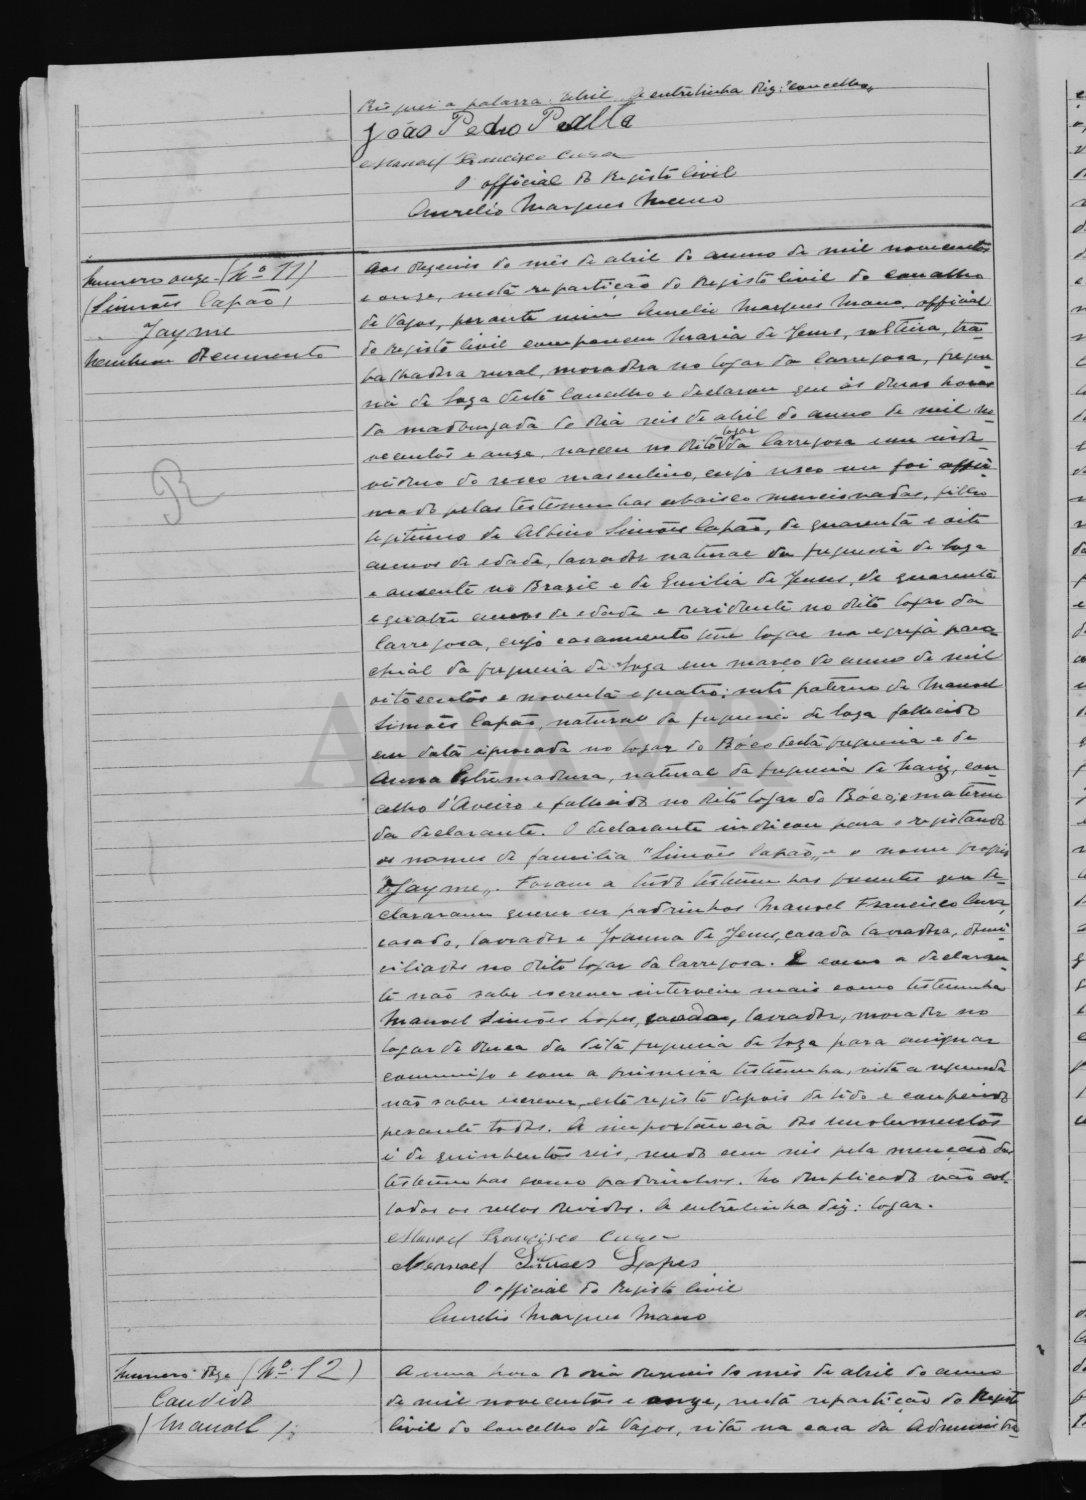 Risquei a palavra: abril. A entrelinha diz: "concelho"
João Pedro Palla
Manoel Francisco Cura
O official do Registo Civil
Aurelio Marques Mano
Numero onze (Nº 11)
(Simões Capão)
Jayme
Nenhum documento
R
Aos dezenis do mês de abril do anno de mil novecentos
e onze, nesta repartição do Registo Civil do concelho
de Vagos, perante mim Aurelio Marques Mano, official
do Registo Civil compareceu Maria de Jesus, solteira, tra-
balhadora rural, moradora no logar da Carregosa, fregue-
zia de Soza deste Concelho e declarou que ás duas horas
da madrugada do dia seis de abril do anno de mil no-
vecentos e onze, nasceu no dito logar da Carregosa um indi-
viduo do sexo masculino, cujo sexo me foi affir-
mado pelas testemunhas abaixo mencionadas, filho
legitimo de Albino Simões Capão, de quarenta e oito
annos de edade, lavrador natural da freguesia de Soza
e ausente no Brazil e de Emilia de Jesus, de quarenta
e quatro annos de edade e residente no dito logar da
Carregosa, cujo casamento teve logar na egreja paro-
chial da freguesia de Soza em março do anno de mil
oitocentos e noventa e quatro; neto paterno de Manoel
Simões Capão, natural da freguesia de Soza fallecido
em data ignorada no logar do Bôco desta freguesia e de
Anna Estremadura, natural da freguesia de Nariz, con-
celho d'Aveiro e fallecida no dito logar do Bôco, e materno
da declarante. O declarante indicou para o registando
os nomes de familia "Simões Capão" e o nome proprio
"Jayme". Foram a tudo testemunhas presentes que de-
clararam querer ser padrinhos Manoel Francisco Cura,
casado, lavrador e Joanna de Jesus, casada lavradora, domi-
ciliados no dito logar da Carregosa. E como a declaran-
te não sabe escrever interveiu mais como testemunha
Manoel Simões Lopes, casado, lavrador, morador no
logar de Ouca da dita freguesia de Soza para assignar
commigo e com a primeira testemunha, visto a segunda
não saber escrever, este registo depois de lido e conferido
perante todos. A importancia dos emolumentos
é de quinhentos reis, sendo cem reis pela menção das
testemunhas como padrinhos. No duplicado vão col-
lados os sellos devidos. A entrelinha diz: logar.
Manoel Francisco Cura
Manoel Simões Lopes
O official do Registo Civil
Aurelio Marques Mano
ADAVR
Numero doze (Nº 12)
Candido
(Manoel)
A uma hora do dia do mês de abril do anno
de mil novecentos e onze, nesta repartição do Registo
Civil do Concelho de Vagos, sita na casa da Administra-